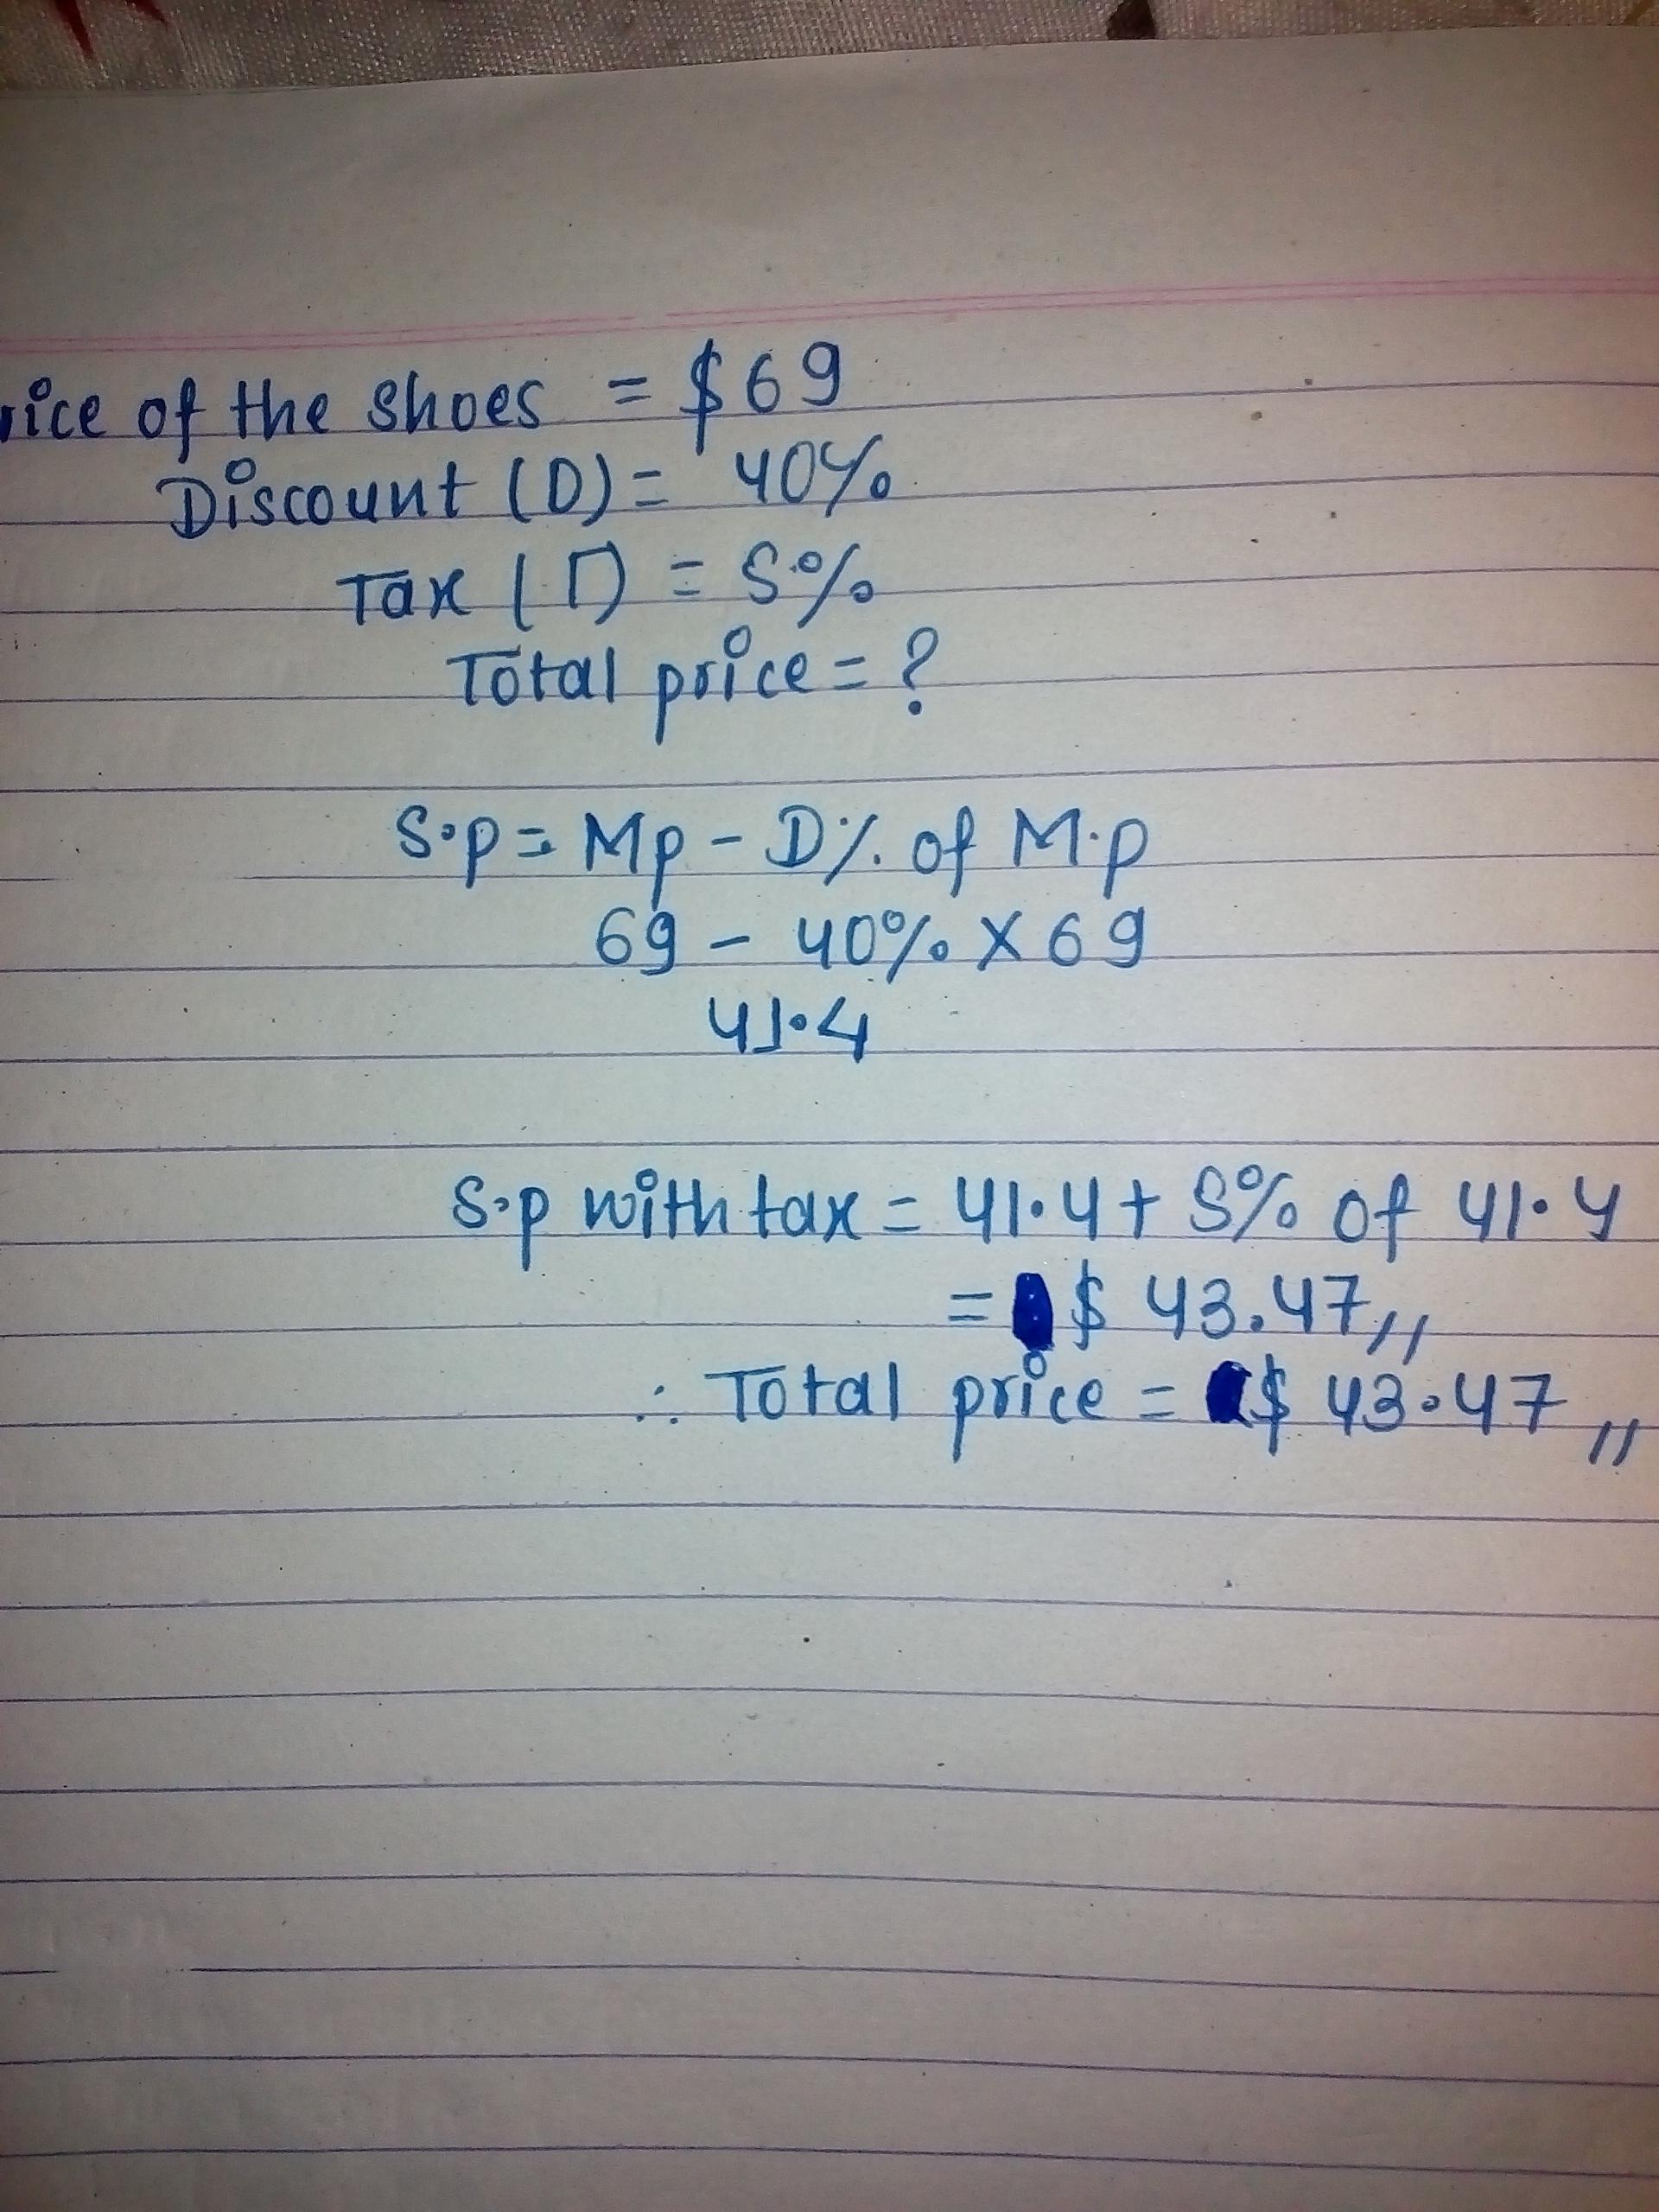 rice of the shoes = $69
Discount (D) = 40%
Tax (T) = 5%
Total price = ?
S.p = Mp - D% of M.p
69 - 40% X 69
41.4
S.p with tax = 41.4 + 5% of 41.4
= $ 43.47,,
∴ Total price = $ 43.47,,